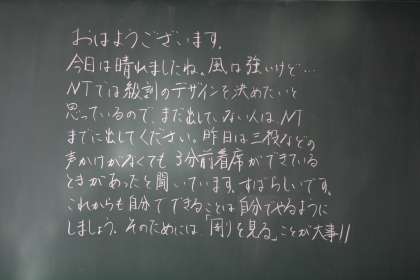 おはようございます。
今日は晴れましたね。風は強いけど…
NTでは級割のデザインを決めたいと
思っているので、まだ出していない人は、NT
までに出してください。昨日は三役などの
声かけがなくても3分前着席ができている
ときがあったと聞いています。すばらしいです。
これからも自分でできることは自分でやるように
しましょう。そのためには「周りを見る」ことが大事!!